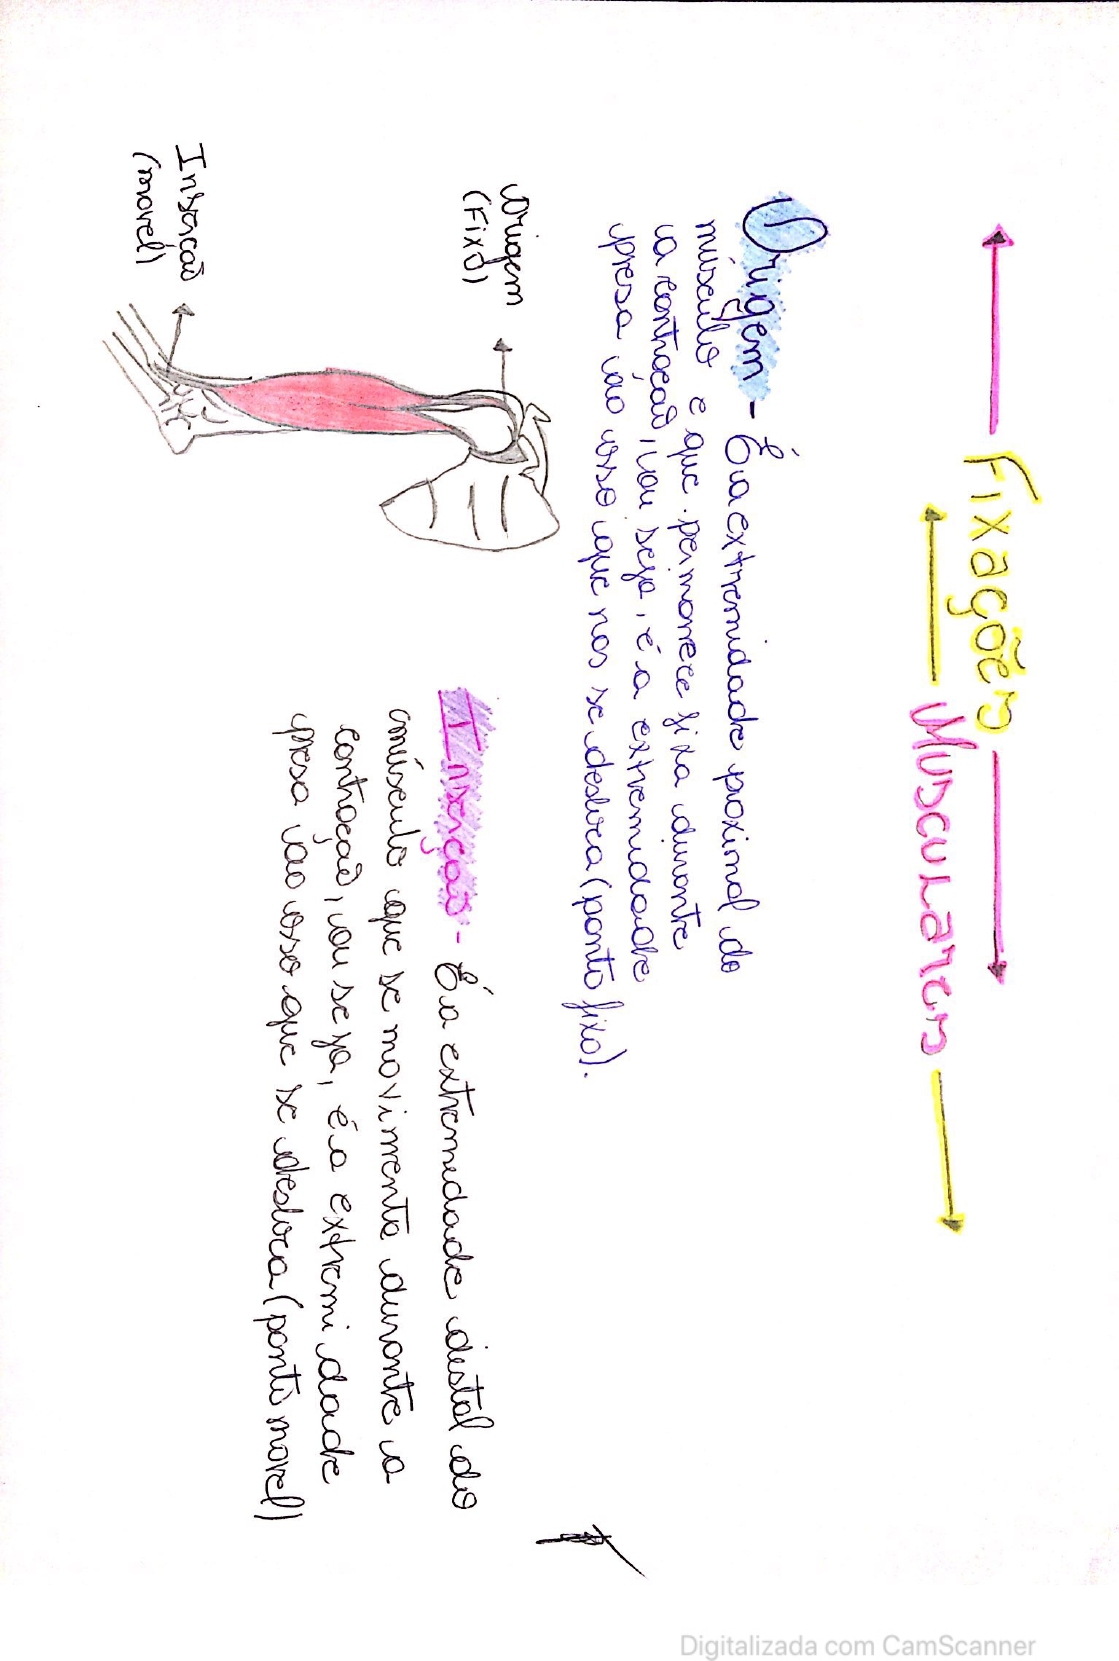 Fixações
Musculares
Origem - É a extremidade proximal do
músculo e que permanece fixa durante
a contração, ou seja, é a extremidade
presa ao osso que nos se desloca (ponto fixo).
Origem
(Fixo)
Inserção
(movel)
Inserção - É a extremidade distal do
músculo que se movimenta durante a
contração, ou seja, é a extremidade
presa ao osso que se desloca (ponto movel)
Digitalizada com CamScanner